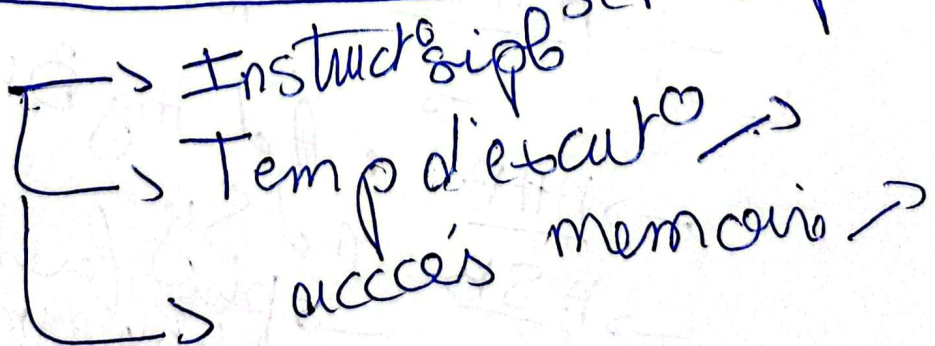 → Instruct° simple
→ Temp d'exécut° ↗
→ accés memoire ↗